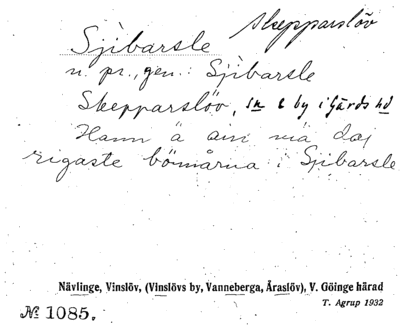 Skepparslöv
Sjibarsle
n. pr., gen.: Sjibarsle
Skepparslöv, sn o by i Gärds hd
Hann ä ain via da
rigaste bönnårna i Sjibarsle
Nävlinge, Vinslöv, (Vinslövs by, Vanneberga, Äraslöv), V. Göinge härad
T. Agrup 1932
№ 1085.